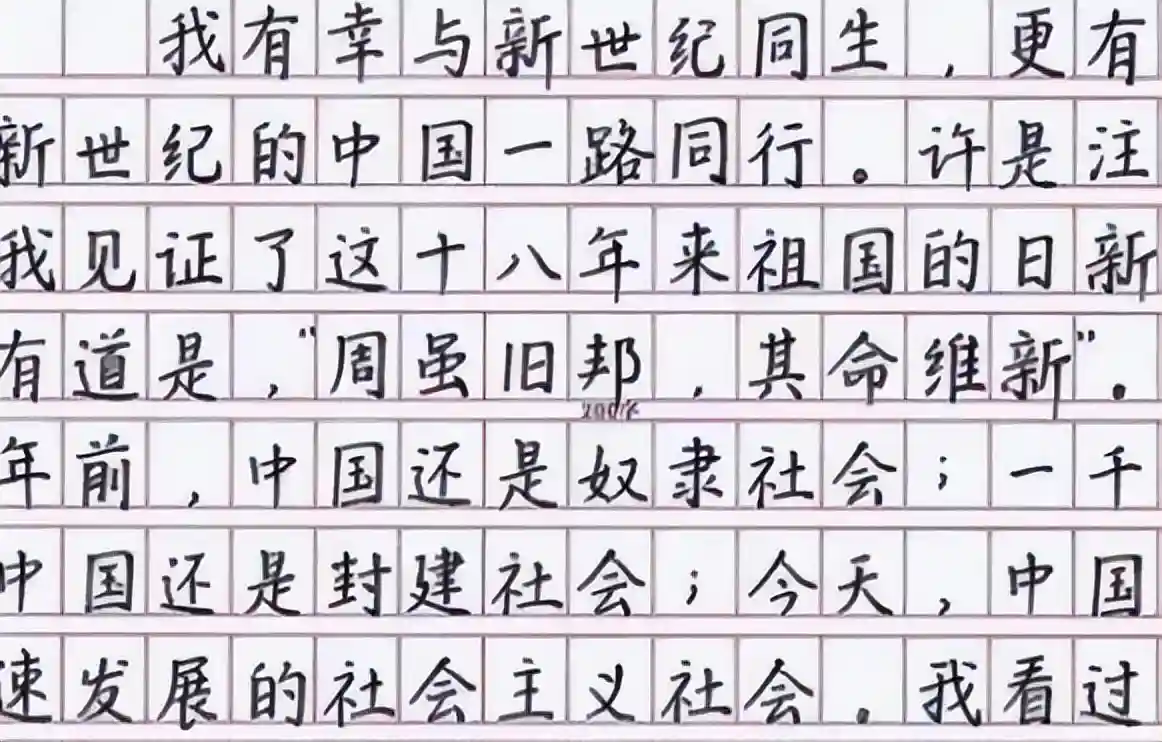 我有幸与新世纪同生，更有
新世纪的中国一路同行。许是注
我见证了这十八年来祖国的日新
有道是，“周虽旧邦，其命维新”。
200字
年前，中国还是奴隶社会；一千
中国还是封建社会；今天，中国
速发展的社会主义社会。我看过